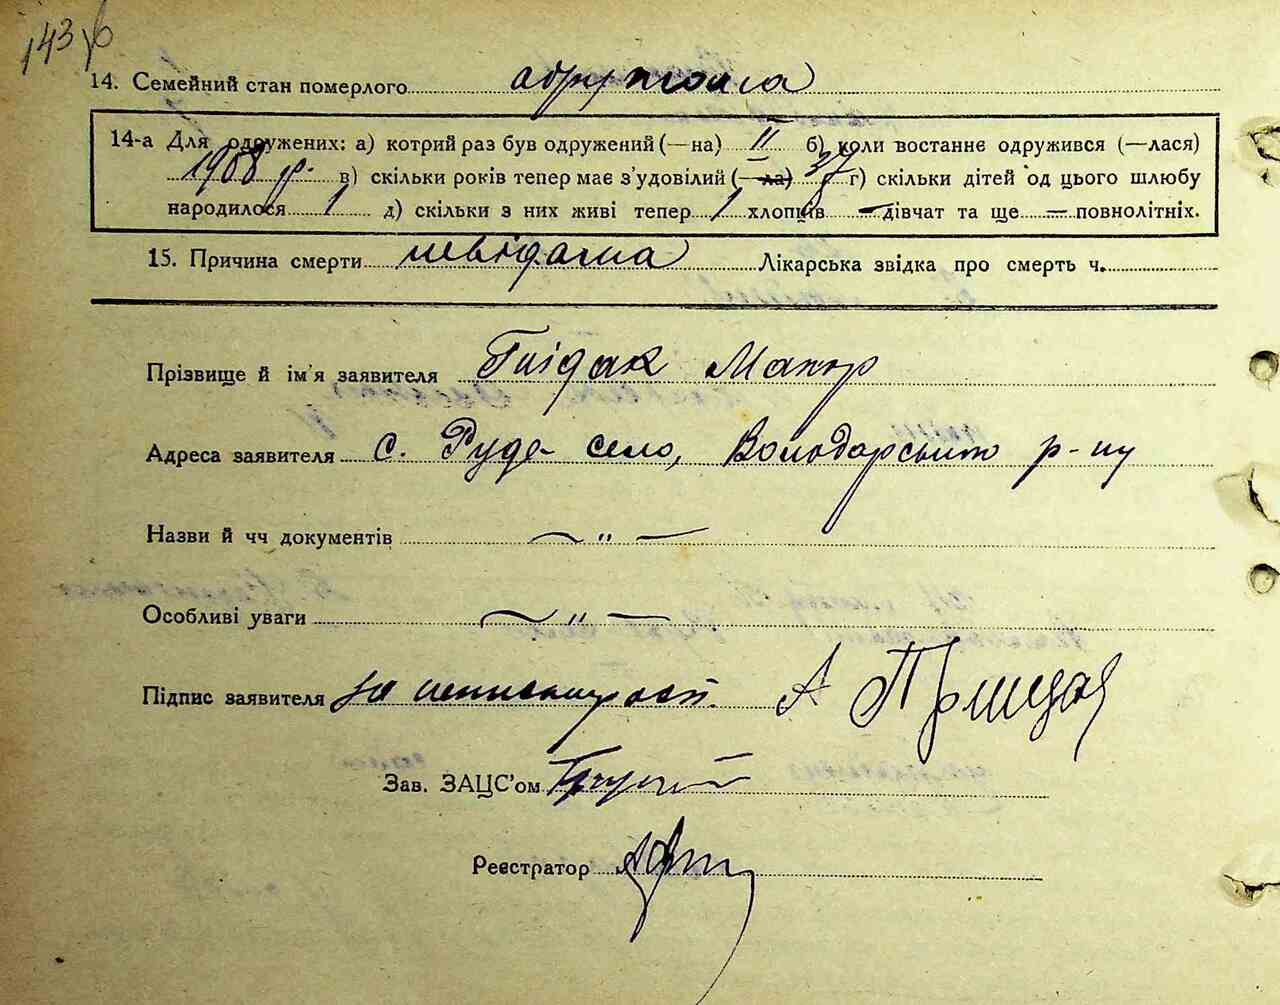 143
14. Семейний стан померлого одружона
14-а Для одружених: а) котрий раз був одружений (—на) II б) коли востаннє одружився (—лася)
1908 р. в) скільки років тепер має з’удовілий (—ла) г) скільки дітей од цього шлюбу
народилося 1 д) скільки з них живі тепер 1 хлопців — дівчат та ще — повнолітніх.
15. Причина смерти невідома Лікарська звідка про смерть ч.
Прізвище й ім’я заявителя Гнідак Макар
Адреса заявителя с. Руде село, Володарського р-ну
Назви й чч документів — " —
Особливі уваги — " —
Підпис заявителя за неписьмурост. А
Зав. ЗАЦС’ом
Реєстратор